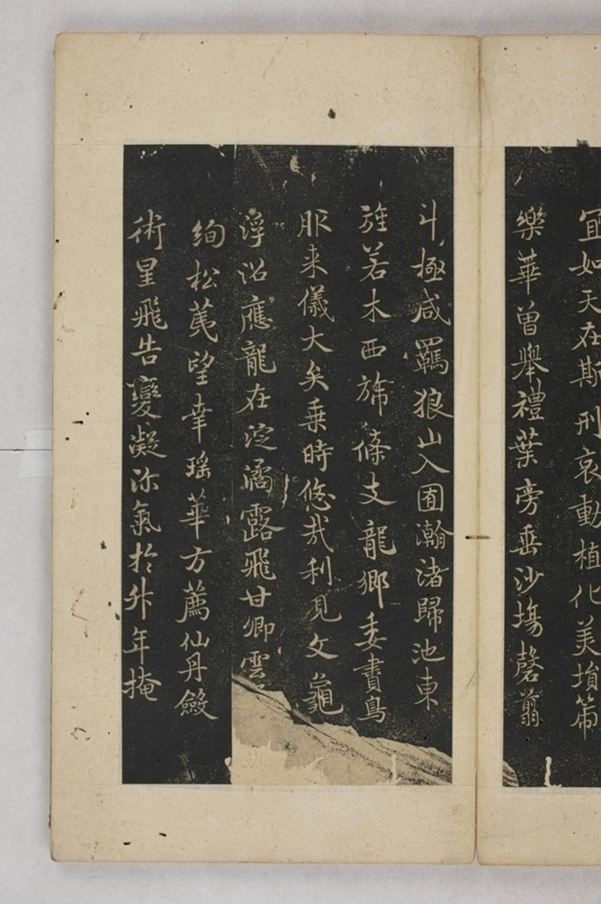 宜如天在斯刑哀動植化美塤箎
樂華曾舉禮葉旁垂沙塲罄翦
斗極咸羈狼山入囿瀚渚歸池東
旌若木西旆條支龍鄉委賮鳥
服来儀大矣乗時悠哉利見文龜
浮沼應龍在淀潏露飛甘卿雲
絢松荑望幸瑤華方薦仙丹斂
術星飛告變凝沴氣於升年掩